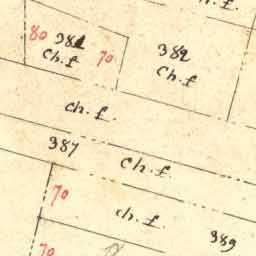 h. f.
80
381
ch. f
70
382
ch. f
ch. f.
387
ch. f
70
ch. f.
389
70